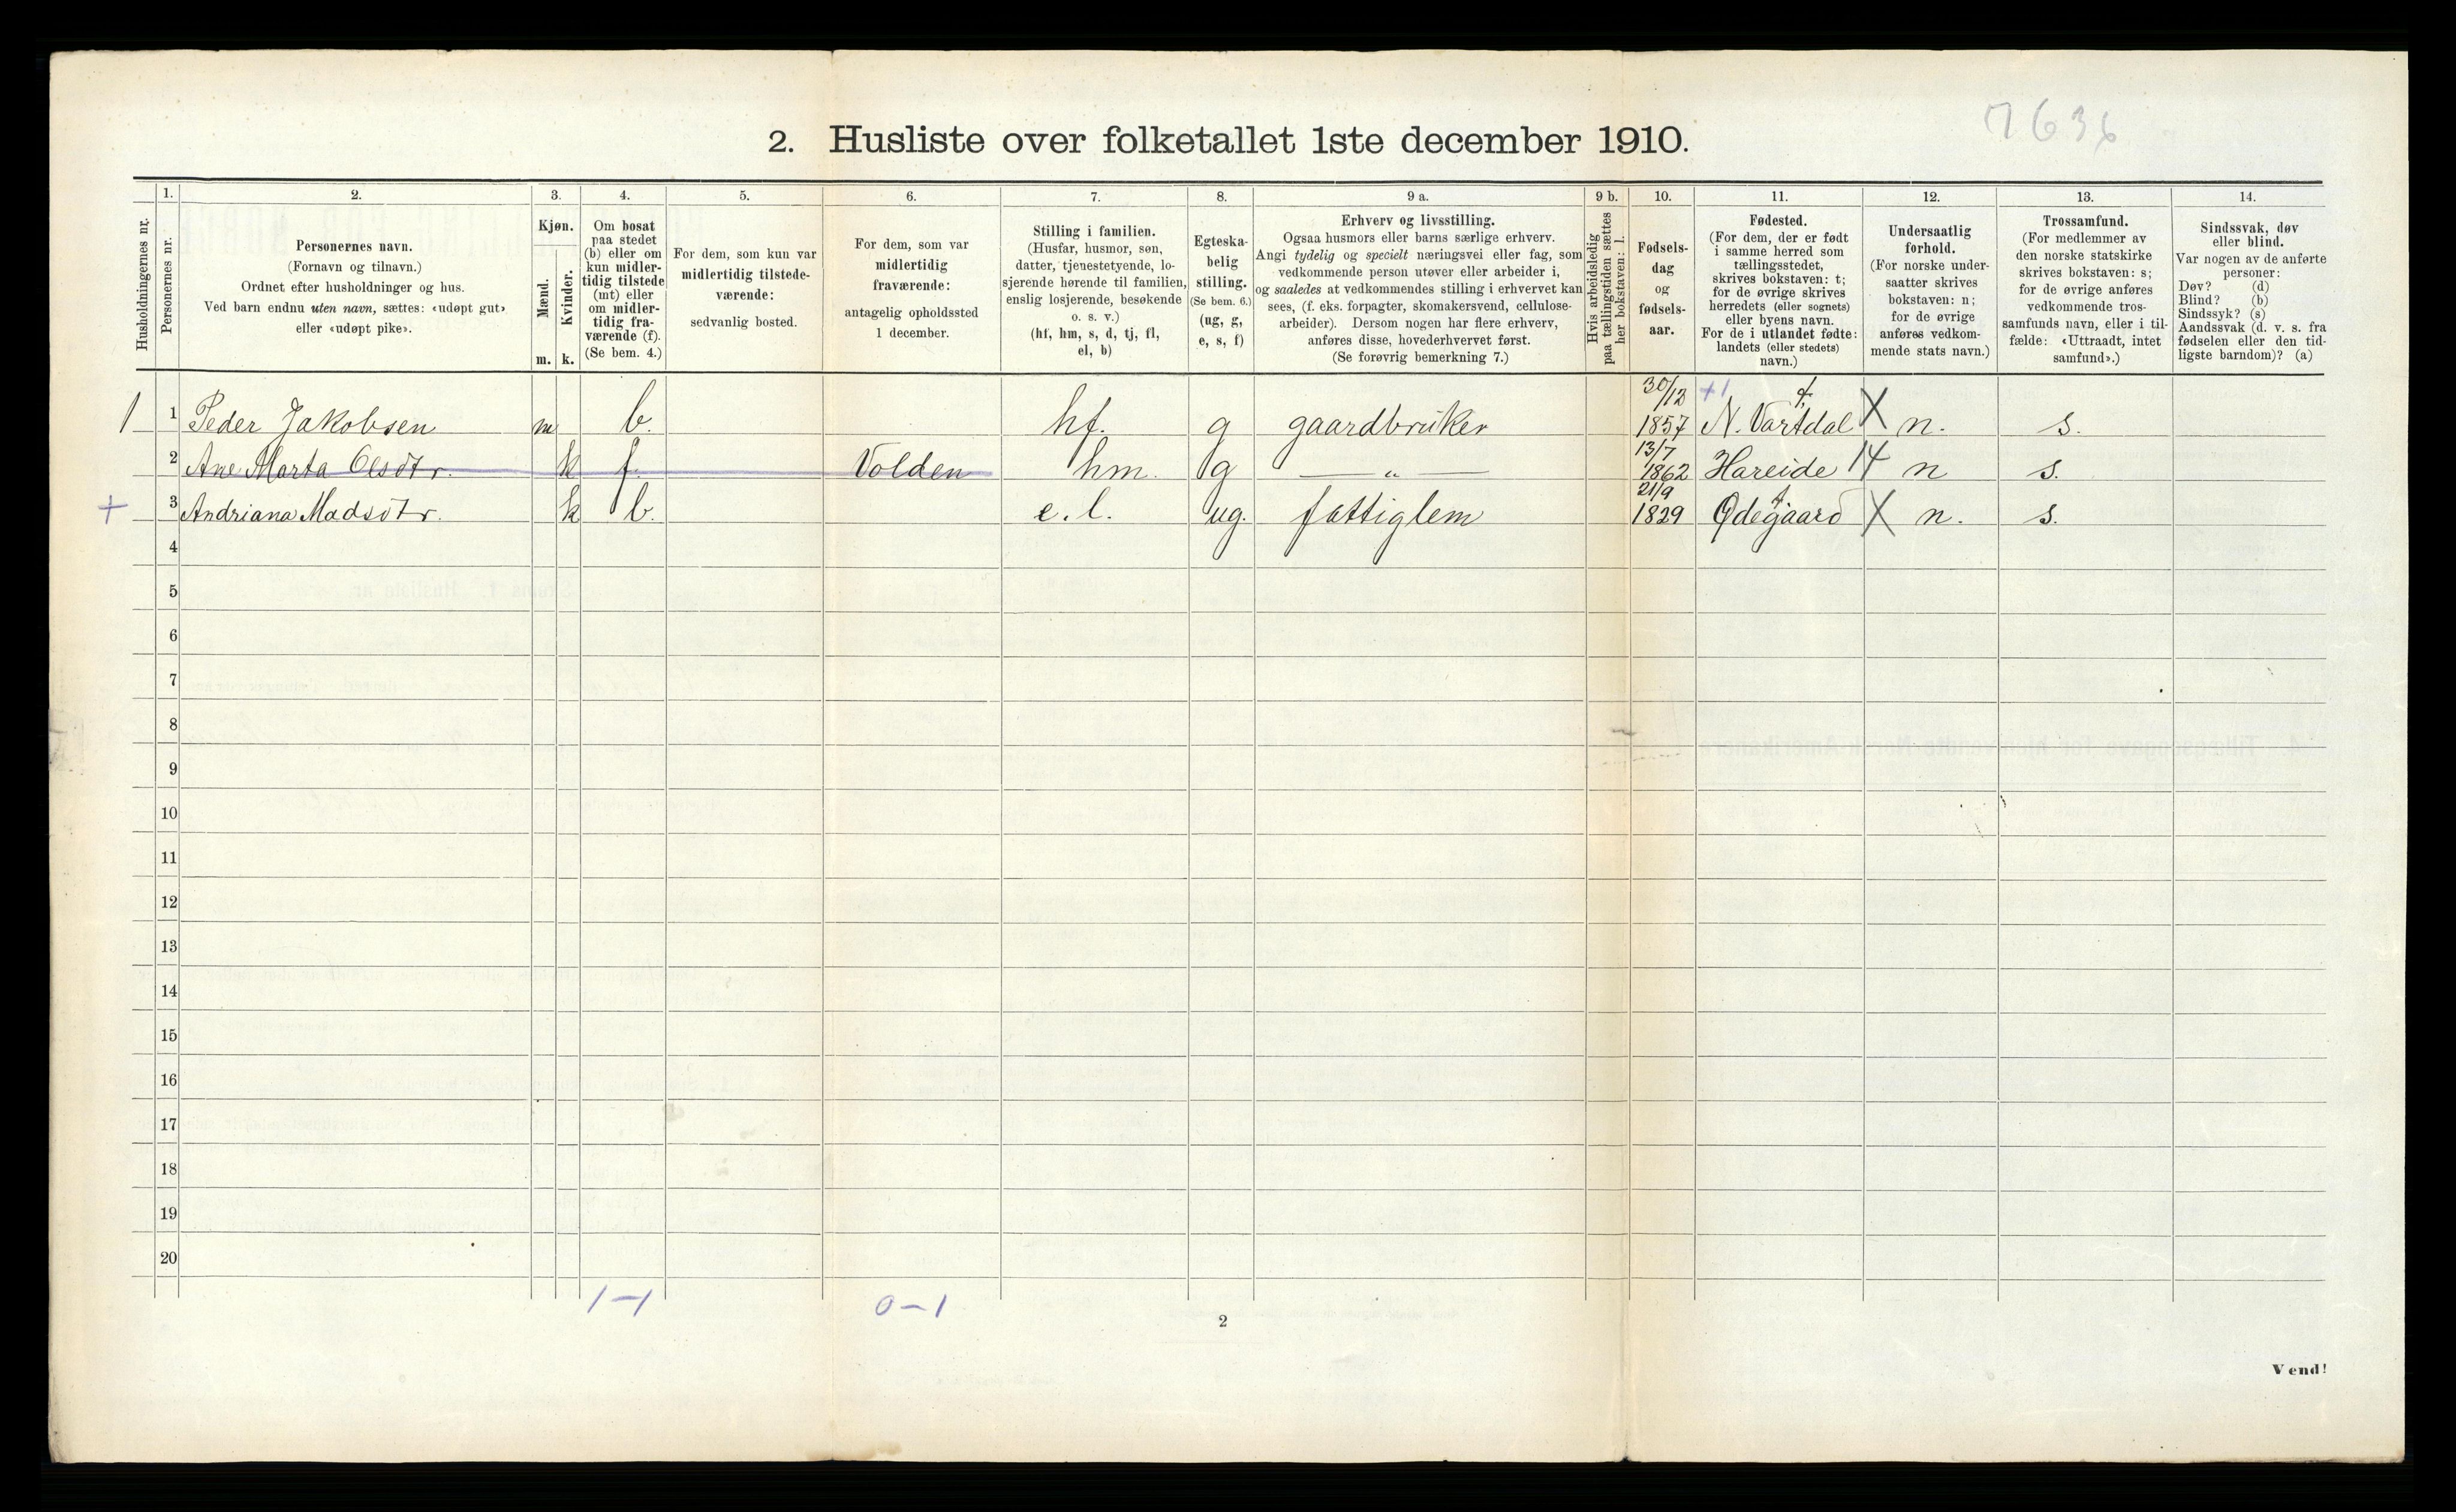 7636
2. Husliste over folketallet 1ste december 1910.
Husholdningernes nr.
1.
Personernes nr.
2.
Personernes navn.
(Fornavn og tilnavn.)
Ordnet efter husholdninger og hus.
Ved barn endnu uten navn, sættes: «udøpt gut»
eller «udøpt pike».
3.
Kjøn.
Mænd.
Kvinder.
m. k.
4.
Om bosat
paa stedet
(b) eller om
kun midler-
tidig tilstede
(mt) eller
om midler-
tidig fra-
værende (f).
(Se bem. 4.)
5.
For dem, som kun var
midlertidig tilstede-
værende:
sedvanlig bosted.
6.
For dem, som var
midlertidig
fraværende:
antagelig opholdssted
1 december.
7.
Stilling i familien.
(Husfar, husmor, søn,
datter, tjenestetyende, lo-
sjerende hørende til familien,
enslig losjerende, besøkende
o. s. v.)
(hf, hm, s, d, tj, fl,
el, b)
8.
Egteska-
belig
stilling.
(Se bem. 6.)
(ug, g,
e, s, f)
9 a.
Erhverv og livsstilling.
Ogsaa husmors eller barns særlige erhverv.
Angi tydelig og specielt næringsvei eller fag, som
vedkommende person utøver eller arbeider i,
og saaledes at vedkommendes stilling i erhvervet kan
sees, (f. eks. forpagter, skomakersvend, cellulose-
arbeider). Dersom nogen har flere erhverv,
anføres disse, hovederhvervet først.
(Se forøvrig bemerkning 7.)
9 b.
Hvis arbeidsledig
paa tællingstiden sættes
her bokstaven: l.
10.
Fødsels-
dag
og
fødsels-
aar.
11.
Fødested.
(For dem, der er født
i samme herred som
tællingsstedet,
skrives bokstaven: t;
for de øvrige skrives
herredets (eller sognets)
eller byens navn.
For de i utlandet fødte:
landets (eller stedets)
navn.)
12.
Undersaatlig
forhold.
(For norske under-
saatter skrives
bokstaven: n;
for de øvrige
anføres vedkom-
mende stats navn.)
13.
Trossamfund.
(For medlemmer av
den norske statskirke
skrives bokstaven: s;
for de øvrige anføres
vedkommende tros-
samfunds navn, eller i til-
fælde: «Uttraadt, intet
samfund».)
14.
Sindssvak, døv
eller blind.
Var nogen av de anførte
personer:
Døv? (d)
Blind? (b)
Sindssyk? (s)
Aandssvak (d. v. s. fra
fødselen eller den tid-
ligste barndom)? (a)
1 1 Peder Jakobsen m b. hf. g gaardbruker 30/12 1857 +1 t. N. Vartdal X n. s.
2 Ane Marta Olsdtr. k f. Volden hm. g — „ — 13/7 1862 Hareide 14 n s.
+ 3 Andriana Madsdtr. k b. e. l. ug. fattiglem 21/9 1829 t Ødegaard X n. s.
4
5
6
7
8
9
10
11
12
13
14
15
16
17
18
19
20
1-1 0-1
2
Vend!